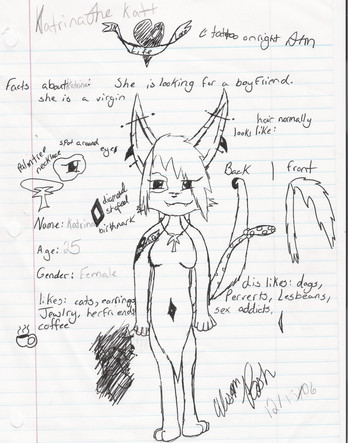 Katrina the Katt
Life
tattoo on right Arm
Facts about Katrina: She is looking for a boyfriend.
she is a virgin
hair normally
looks like:
spot around
eyes
palmtree
necklace
Back | Front
diamond
shaped
birthmark
Name: Katrina
Age: 25
Gender: Female
likes: cats, earrings
Jewlry, her friends
coffee
dis likes: dogs,
Perverts, Lesbeans,
sex addicts.
12/1/06